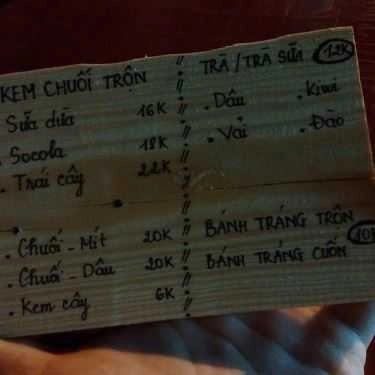 KEM CHUỐI TRỘN
Sữa dừa 16K
. Socola 18K
. Trái cây 22K
. Chuối - Mít 20K
. Chuối - Dâu 20K
. Kem cây 6K
TRÀ / TRÀ SỮA 12K
. Dâu . Kiwi
. Vải . Đào
BÁNH TRÁNG TRỘN
BÁNH TRÁNG CUỐN 10K